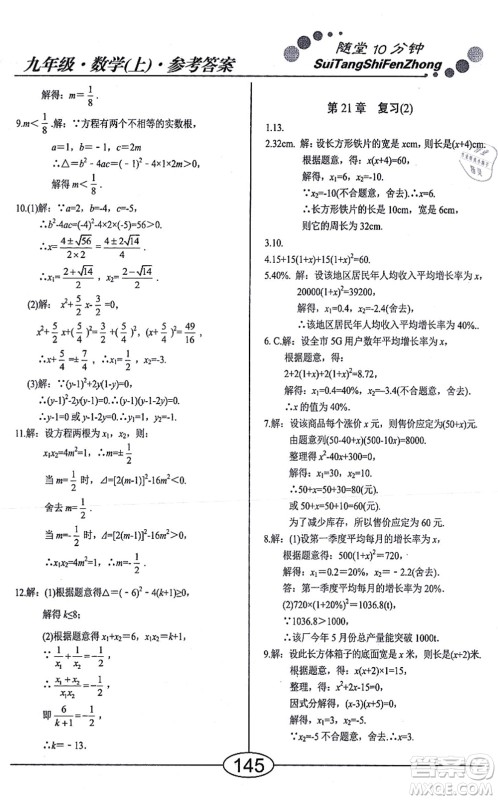 九年级·数学(上)·参考答案
随堂10分钟
SuiTangShiFenZhong
解得：m=1/8.
9.m<1/8.解：∵方程有两个不相等的实数根，
a=1，b=-1，c=2m，
∴△=b²-4ac=(-1)²-4·1·2m>0.
解得：m<1/8.
10.(1)解：∵a=2，b=-4，c=-5，
∴b²-4ac=(-4)²-4×2×(-5)=56>0.
∴x=(4±√56)/(2×2)=(2±√14)/2.
∴x₁=(2+√14)/2，x₂=(2-√14)/2.
(2)解：x²+5/2x-3/2=0，
x²+5/2x+(5/4)²=3/2+(5/4)²，(x+5/4)²=49/16，
∴x+5/4=±7/4，∴x₁=1/2，x₂=-3.
(3)解：∵(y-1)²+2y(1-y)=0，
∴(y-1)²-2y(y-1)=0，∴(y-1)(y-1-2y)=0.
∴y-1=0或y-1-2y=0，∴y₁=1，y₂=-1.
11.解：设方程两根为x₁，x₂，则：
x₁x₂=4m²=1，∴m=±1/2.
当m=1/2时，Δ=[2(m-1)]²-16m²<0，
舍去m=1/2.
当m=-1/2时，Δ=[2(m-1)]²-16m²>0，
∴x₁x₂=4m²=1，∴m=-1/2.
12.解：(1)根据题意得△=(-6)²-4(k+1)≥0，
解得k≤8；
(2)根据题意得x₁+x₂=6，x₁x₂=k+1，
∵1/x₁+1/x₂=-1/2，
∴(x₁+x₂)/(x₁x₂)=-1/2，
即6/(k+1)=-1/2，
∴k=-13.
第21章 复习(2)
1.13.
2.32cm.解：设长方形铁片的宽是xcm，则长是(x+4)cm.
根据题意，得：x(x+4)=60，
解得，x₁=6，x₂=-10.
∵x₂=-10不合题意，舍去；∴x=6.
∴长方形铁片的长是10cm，宽是6cm，
则它的周长为32cm.
3.10.
4.15+15(1+x)+15(1+x)².
5.40%.解：设该地区居民年人均收入平均增长率为x，
20000(1+x)²=39200，
解得，x₁=0.4，x₂=-2.4(舍去)，
∴该地区居民年人均收入平均增长率为40%..
6.C.解：设全市5G用户数年平均增长率为x，
根据题意，得：
2+2(1+x)+2(1+x)²=8.72，
解得：x₁=0.4=40%，x₂=-3.4(不合题意，舍去).
∴x的值为40%.
7.解：设该商品每个涨价x元，根据题意，得：
根据题意列(50-40+x)(500-10x)=8000，
整理得x²-40x+300=0，
解得：x₁=10，x₂=30，
∴50+x=50+30=80(元)，
或50+x=50+10=60(元).
为了减少库存，所以售价应定为60元.
8.解：(1)设第一季度平均每月的增长率为x，
根据题意，得：500(1+x)²=720.
解得：x₁=0.2=20%，x₂=-2.2(舍去).
答：第一季度平均每月的增长率为20%.
(2)720(1+x)²=1036.8(t)，
∵1036.8>1000，
∴该厂今年5月份总产量能突破1000t.
9.解：设此长方体箱子的底面宽度是x米，则长是(x+2)米.
根据题意，得：x(x+2)×1=15，
整理得：x²+2x-15=0，
因式分解得，(x-3)(x+5)=0，
解得x₁=3，x₂=-5，
∵x₂=-5不合题意，舍去，
145